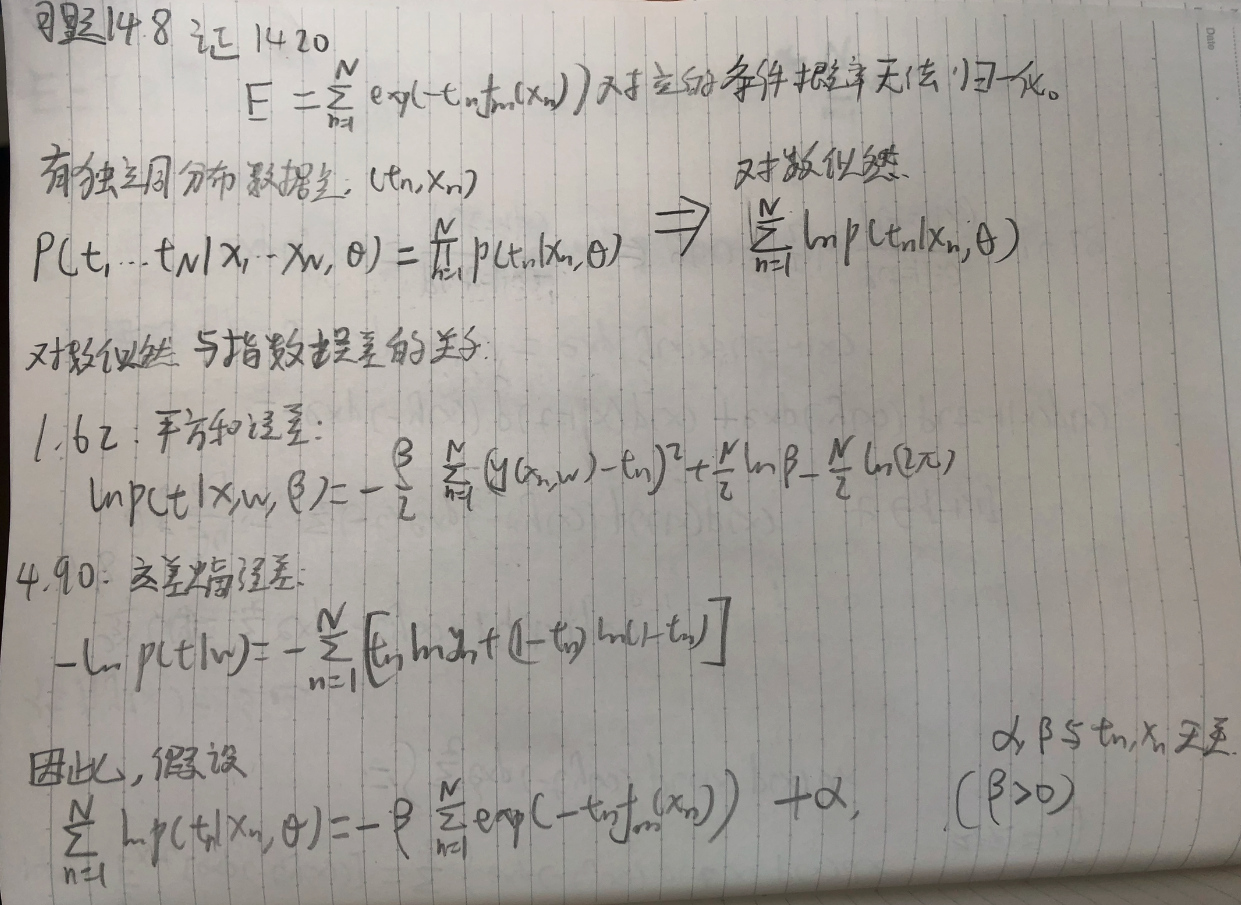 习题14.8 证 14.20
E = \sum_{n=1}^{N} exp(-t_n f_m(x_n)) 对应的条件概率无法归一化。
有独立同分布数据集: (t_n, x_n)
对数似然
P(t_1 ... t_N | x_1 ... x_N, θ) = \prod_{n=1}^{N} p(t_n|x_n, θ) ⇒ \sum_{n=1}^{N} ln p(t_n|x_n, θ)
对数似然与指数误差的关系:
1.62: 平方和误差:
ln p(t|x, w, β) = -\frac{β}{2} \sum_{n=1}^{N} (y(x_n, w) - t_n)^2 + \frac{N}{2} ln β - \frac{N}{2} ln(2π)
4.90: 交差熵误差:
-ln p(t|w) = -\sum_{n=1}^{N} [t_n ln y_n + (1-t_n) ln(1-t_n)]
因此, 假设
α, β 与 t_n, x_n 无关
\sum_{n=1}^{N} ln p(t_n|x_n, θ) = -β \sum_{n=1}^{N} exp(-t_n f_m(x_n)) + α, (β>0)